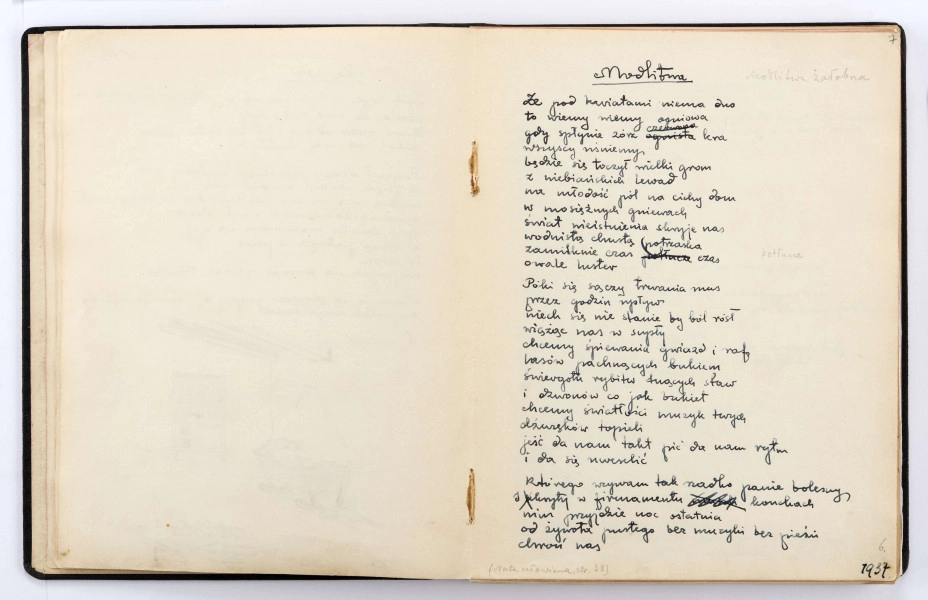 7
Modlitwa
Modlitwa żałobna
Że pod kwiatami niema dna
to wiemy wiemy ogniowa
czerwona
gdy spłynie zórz ognista kra
wszyscy uśniemy
będzie się toczył wielki grom
z niebiańskich lewad
na młodość pól na cichy dom
w mosiężnych gniewach
świat nieistnienia skryje nas
wodnistą chustą potrzaska
zamilknie czas potłucze czas
potłucze
owale luster
Póki się sączy trwania mus
przez godzin upływ
niech się nie stanie by ból rósł
wiążąc nas w supły
chcemy śpiewania gwiazd i raf
lasów pachnących bukiem
świergotu rybitw tnących staw
i dzwonów co jak bukiet
chcemy światłości muzyk twych
dźwięków topieli
jeść da nam takt pić da nam rytm
i da się uweselić
Którego wzywam tak rzadko panie bolesny
skryty w firmamentu konchach
nim przyjdzie noc ostatnia
od żywota pustego bez muzyki bez pieśni
chroń nas
6.
1937